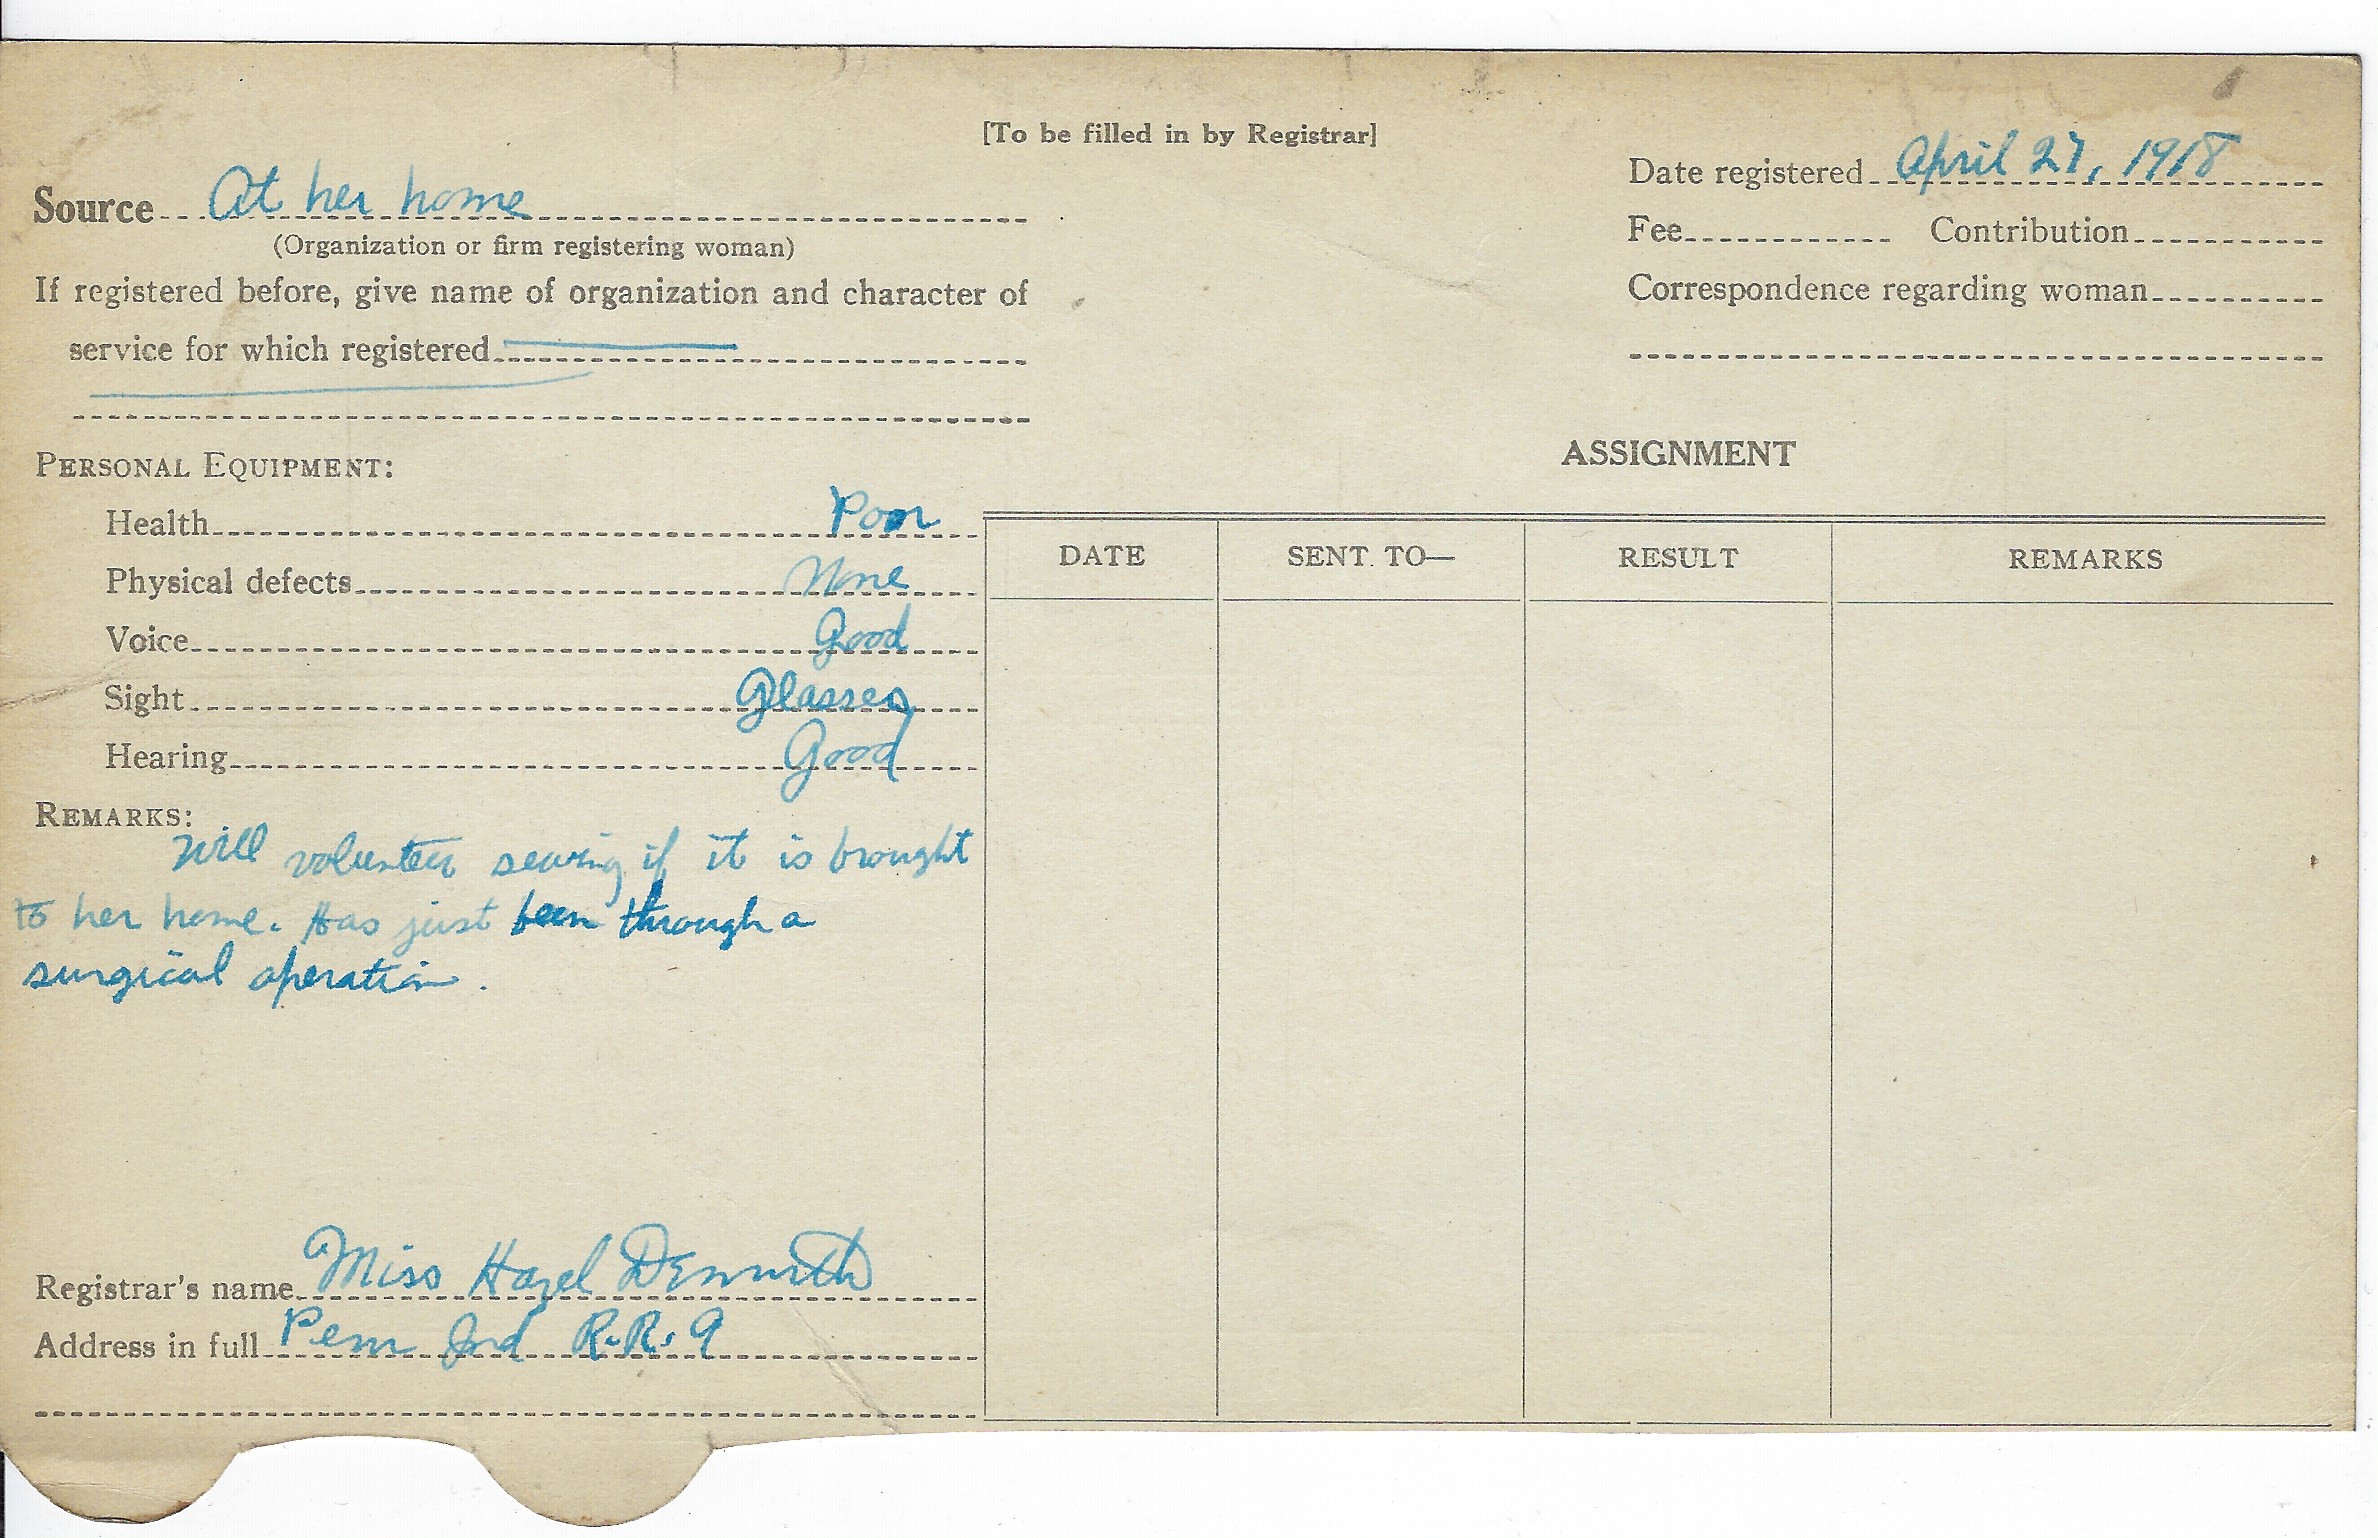 [To be filled in by Registrar]
Source At her home
(Organization or firm registering woman)
If registered before, give name of organization and character of
service for which registered
Date registered April 27, 1918
Fee Contribution
Correspondence regarding woman
PERSONAL EQUIPMENT:
Health Poor
Physical defects None
Voice Good
Sight Glasses
Hearing Good
REMARKS:
Will volunteer sewing if it is brought
to her home. Has just been through a
surgical operation.
Registrar's name Miss Hazel
Address in full Peru Ind R.R. 9
ASSIGNMENT
DATE SENT TO— RESULT REMARKS